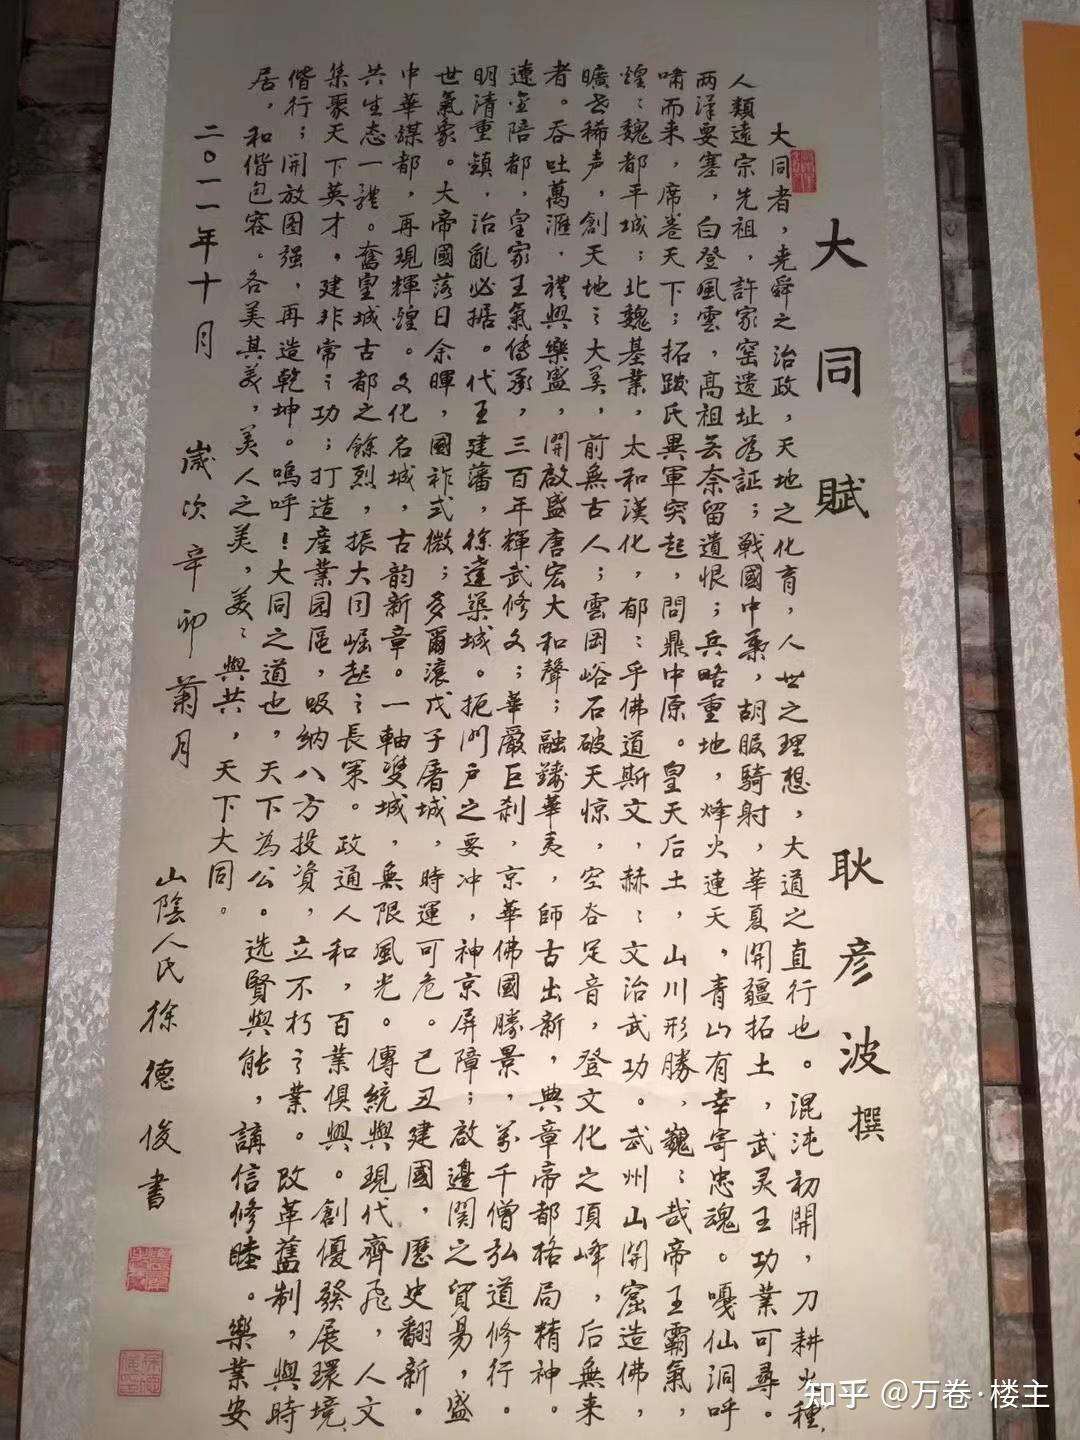 大同賦
耿彦波撰
大同者，尧舜之治政，天地之化育，人世之理想，大道之直行也。混沌初開，刀耕火種，
人類遠宗先祖，許家窑遗址為証；戰國中葉，胡服騎射，華夏開疆拓土，武灵王功業可尋。
两漢要塞，白登風雲，高祖無奈留遺恨；兵略重地，烽火連天，青山有幸寄忠魂。嘎仙洞呼
嘯而来，席卷天下；拓跋氏異軍突起，問鼎中原。皇天后土，山川形勝，巍：哉帝王霸氣，
煌：魏都平城；北魏基業，太和漢化，郁：乎佛道斯文，赫：文治武功。武州山開窟造佛，
曠世稀声，創天地之大美，前無古人；雲岡峪石破天惊，空谷足音，登文化之頂峰，后無来
者。吞吐萬滙，禮興樂盛，開啟盛唐宏大和聲；融鑄華夷，師古出新，典章帝都格局精神。
遼金陪都，皇家王氣傳承，三百年輝武修文；華嚴巨刹，京華佛國勝景，万千僧弘道修行。
明清重鎮，治亂必据。代王建藩，徐達築城。扼門户之要冲，神京屏障；啟邊関之貿易，盛
世氣象。大帝國落日余暉，國祚式微；多爾滚戊子屠城，時運可危。己丑建國，歷史翻新。
中華煤都，再現輝煌。文化名城，古韵新章。一軸雙城，無限風光。傳統與現代齊飛，人文
共生态一體。奮皇城古都之餘烈，振大同崛起之長策。政通人和，百業俱興。創優發展環境，
集聚天下英才。建非常之功；打造産業园區，吸纳八方投資，立不朽之業。改革舊制，與時
偕行；開放图强，再造乾坤。嗚呼！大同之道也，天下為公。选賢與能，講信修睦。樂業安
居，和偕包容。各美其美，美人之美，美：與共，天下大同。
二〇一一年十月 歲次辛卯菊月 山陰人氏徐德俊書
知乎 @万卷·楼主